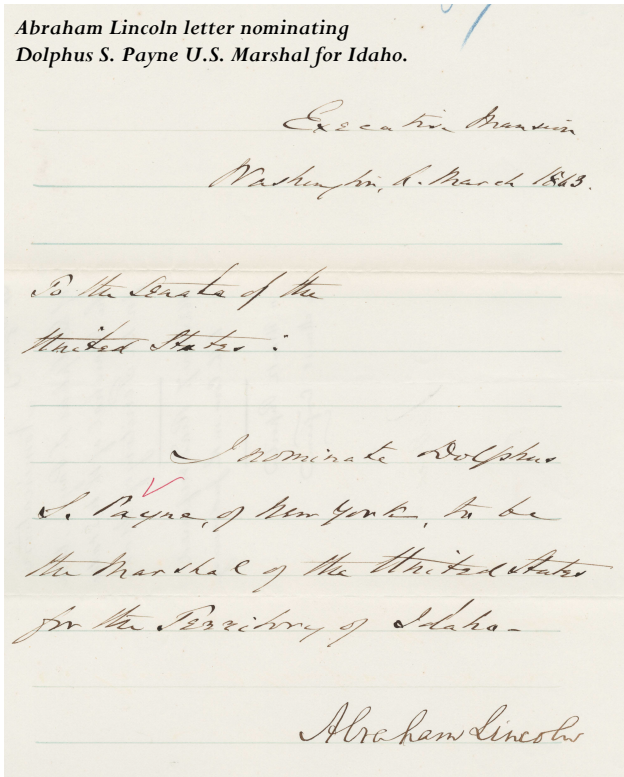 Abraham Lincoln letter nominating
Dolphus S. Payne U.S. Marshal for Idaho.
Executive Mansion
Washington, March 1863.
To the Senate of the
United States:
I nominate Dolphus
S. Payne, of New York, to be
the Marshal of the United States
for the Territory of Idaho—
Abraham Lincoln